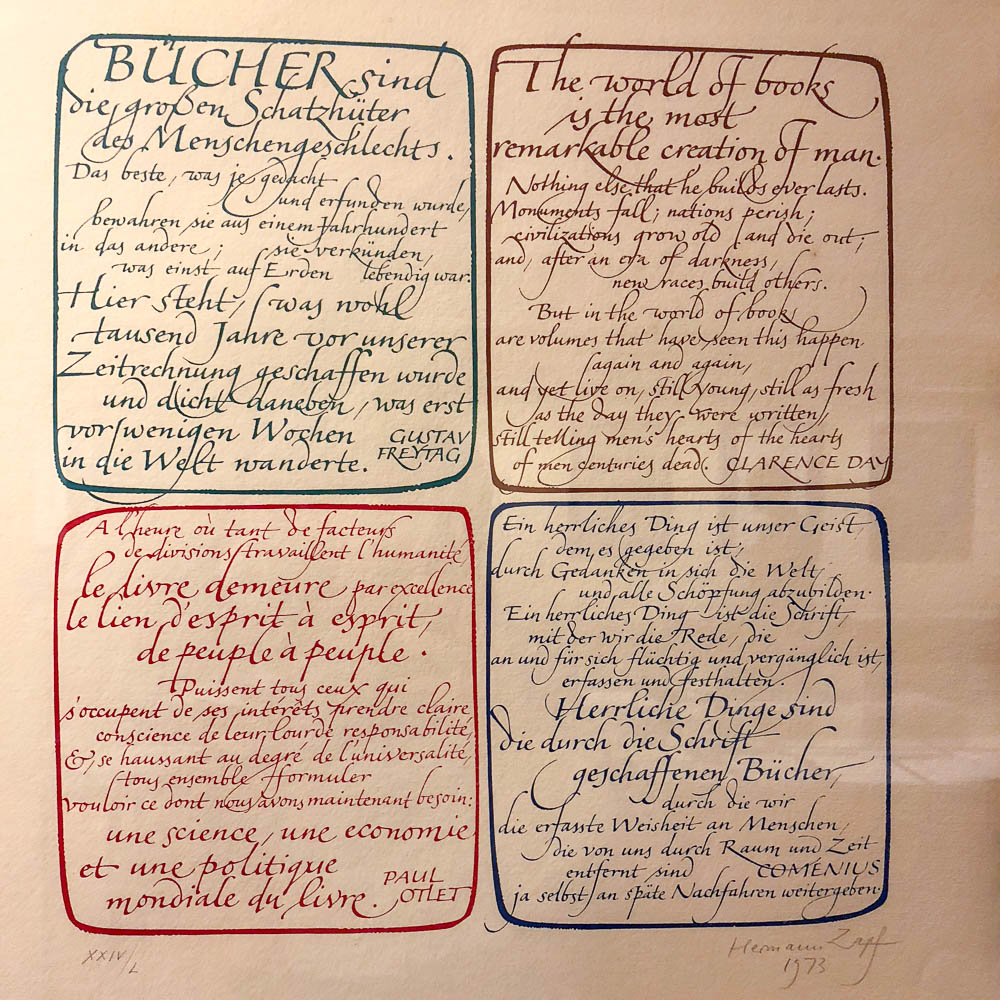 BÜCHER sind
die großen Schatzhüter
des Menschengeschlechts.
Das beste, was je gedacht
und erfunden wurde,
bewahren sie aus einem Jahrhundert
in das andere; sie verkünden,
was einst auf Erden lebendig war.
Hier steht, was wohl
tausend Jahre vor unserer
Zeitrechnung geschaffen wurde
und dicht daneben, was erst
vor wenigen Wochen
in die Welt wanderte.
GUSTAV
FREYTAG
The world of books
is the most
remarkable creation of man.
Nothing else that he builds ever lasts.
Monuments fall; nations perish;
civilizations grow old and die out;
and, after an era of darkness,
new races build others.
But in the world of books
are volumes that have seen this happen
again and again,
and yet live on, still young, still as fresh
as the day they were written,
still telling men's hearts of the hearts
of men centuries dead. CLARENCE DAY
A l'heure où tant de facteurs
de divisions travaillent l'humanité,
le livre demeure par excellence
le lien d'esprit à esprit,
de peuple à peuple.
Puissent tous ceux qui
s'occupent de ses intérêts prendre claire
conscience de leur lourde responsabilité,
&, se haussant au degré de l'universalité,
tous ensemble formuler
vouloir ce dont nous avons maintenant besoin:
une science, une economie
et une politique
mondiale du livre.
PAUL
OTLET
Ein herrliches Ding ist unser Geist,
dem es gegeben ist,
durch Gedanken in sich die Welt
und alle Schöpfung abzubilden.
Ein herrliches Ding ist die Schrift,
mit der wir die Rede, die
an und für sich flüchtig und vergänglich ist,
erfassen und festhalten.
Herrliche Dinge sind
die durch die Schrift
geschaffenen Bücher,
durch die wir
die erfasste Weisheit an Menschen,
die von uns durch Raum und Zeit
entfernt sind COMENIUS
ja selbst an späte Nachfahren weitergeben.
XXIV/L
Hermann Zapf
1973